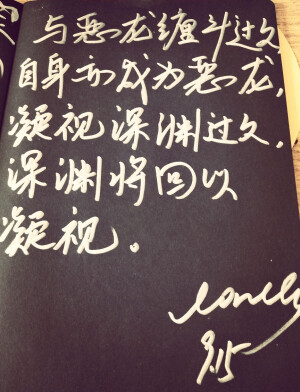 与恶龙缠斗过久
自身亦成为恶龙,
凝视深渊过久.
深渊将回以
凝视。
lonely
9.15